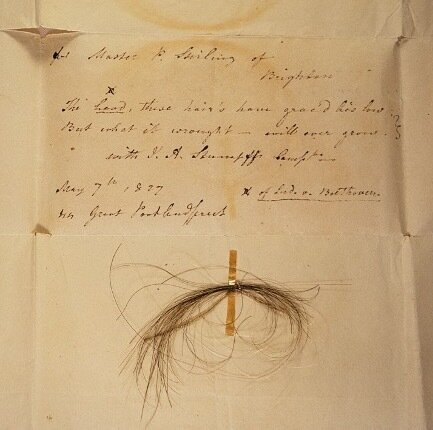 for Master P. Stirling of
Brighton
x
The head, these hair's have grac'd his low
But what it wrought – will ever grow.
with J. A. Stumpff's Compts –
May 7th, 1827
Great Portland Street
x of Ludw. v. Beethoven.